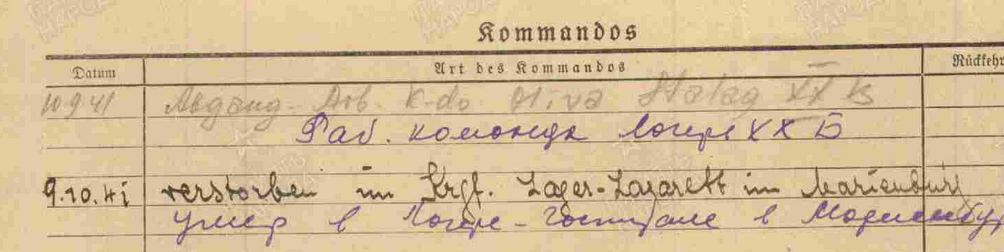 Kommandos
Datum Art des Kommandos Rückkehr
10.9.41 Abgang. Arb. K-do Oliva Stalag XX B
Раб. команда Лагерь XX Б
9.10.41 verstorben im Krgf. Lager-Lazarett im Marienburg
Умер в Лагре-Госпитале в Мариенбур